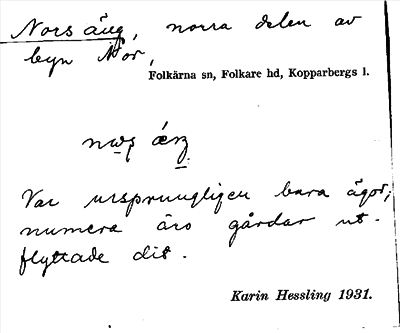 Nors äng, norra delen av
byn Nor,
Folkärna sn, Folkare hd, Kopparbergs l.
Var ursprungligen bara ägor;
numera äro gårdar ut-
flyttade dit.
Karin Hessling 1931.